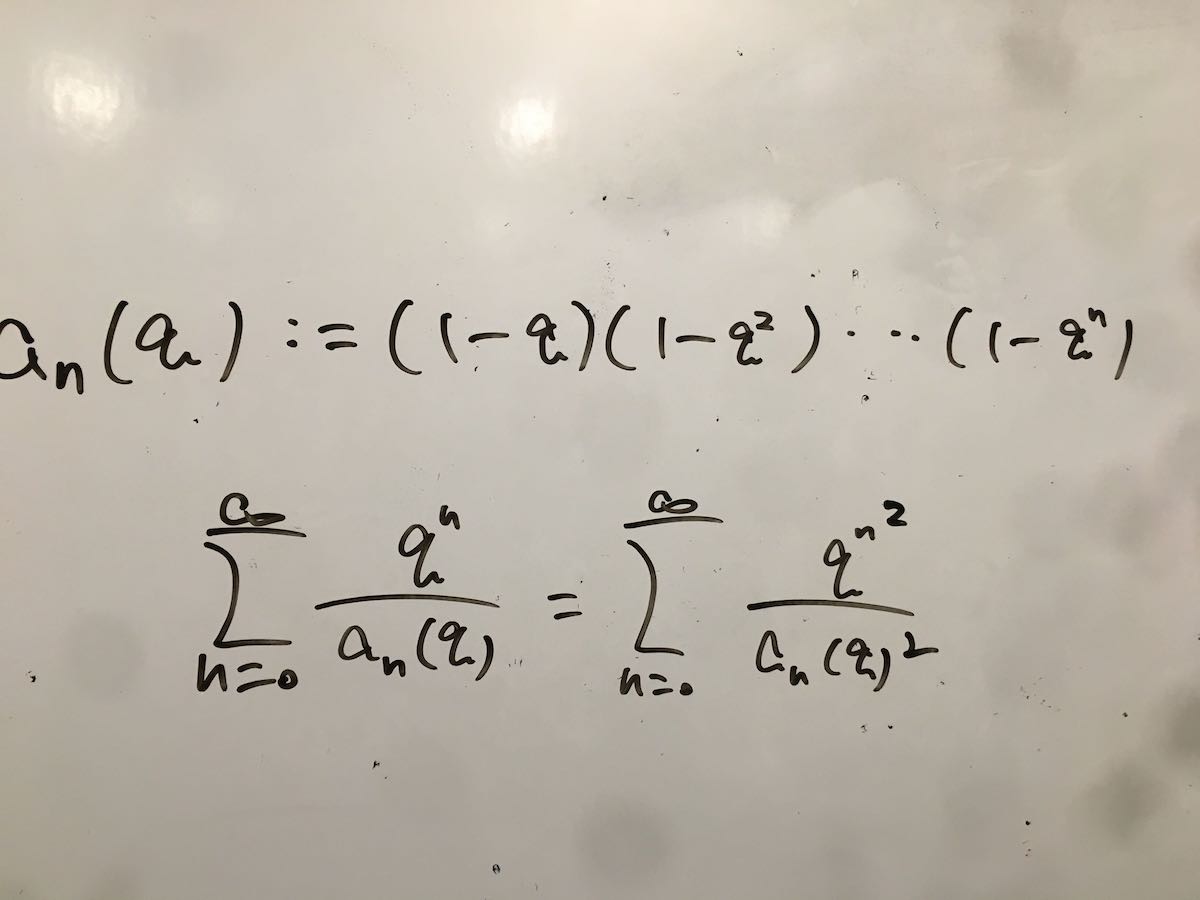 aₙ(q) := (1-q)(1-q²)···(1-qⁿ)
∑_{n=0}^{∞} qⁿ/aₙ(q) = ∑_{n=0}^{∞} q^{n²}/aₙ(q)²